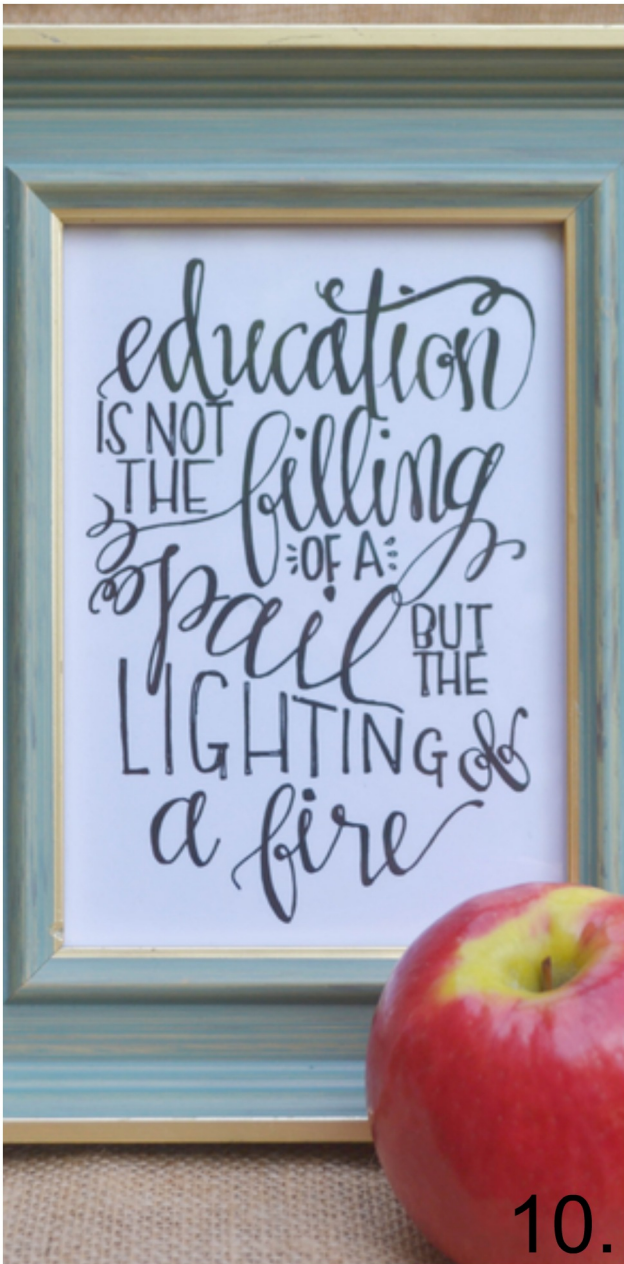 education
IS NOT
THE
filling
OF A
pail
BUT
THE
LIGHTING of
a fire
10.